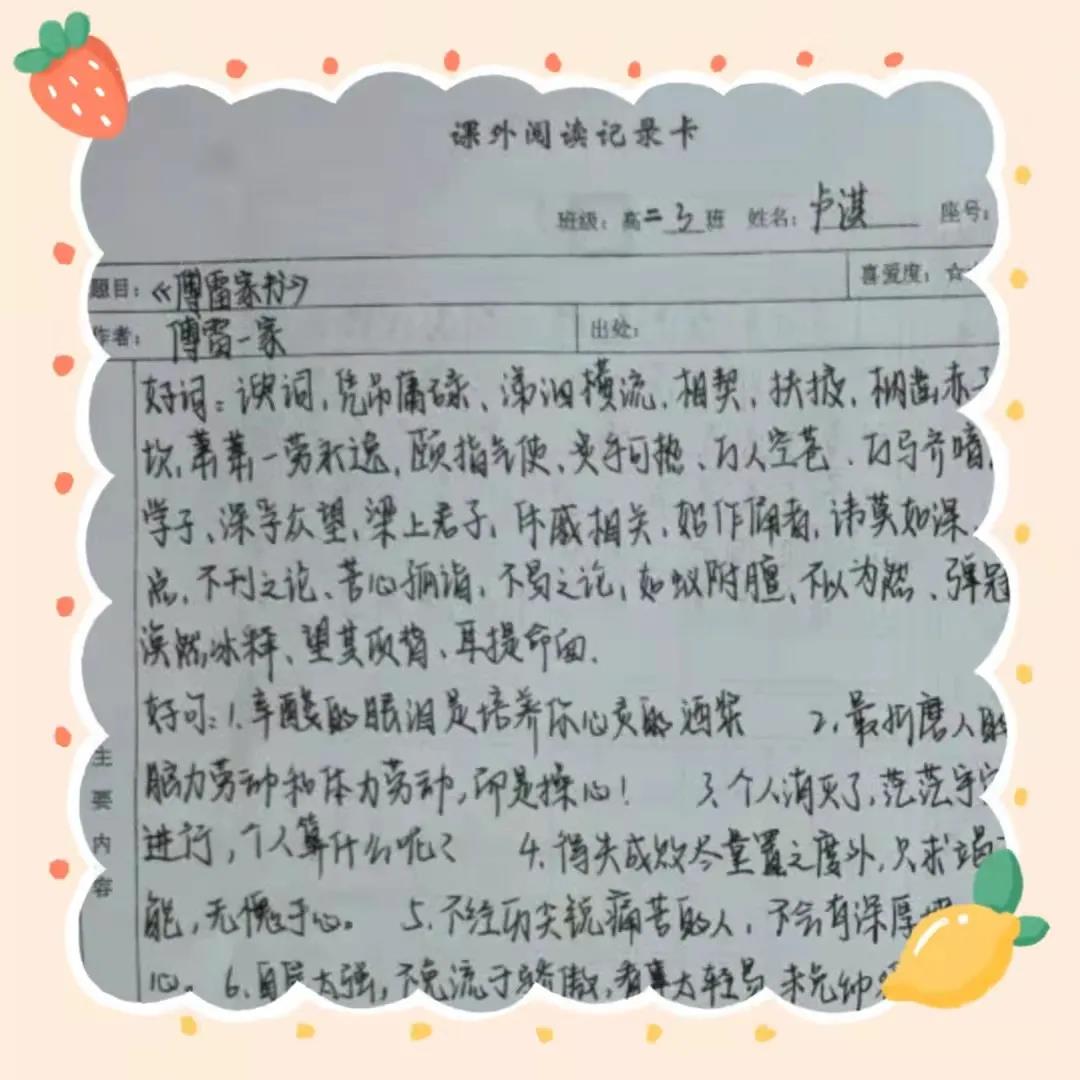 课外阅读记录卡
班级：高二3班 姓名：卢淇 座号：
题目：《傅雷家书》 喜爱度：☆
作者：傅雷一家 出处：
好词：谀词、凭吊庸碌、涕泪横流、相契、扶掖、棚造赤子
坎、荦荦一劳永逸、颐指气使、炙手可热、万人空巷、万马齐喑、
学子、深孚众望、梁上君子、休戚相关、始作俑者、讳莫如深、
点、不刊之论、苦心孤诣、不易之论、如蚁附膻、不以为然、弹冠
涣然冰释、望其项背、耳提命面.
好句：1.辛酸的眼泪是培养你心灵的酒浆 2.最折磨人的
脑力劳动和体力劳动，即是操心！ 3.个人消灭了，茫茫宇宙
进行，个人算什么呢？ 4.得失成败尽量置之度外，只求竭
能，无愧于心。 5.不经历尖锐痛苦的人，不会有深厚
心。 6.自尊太强，不免流于骄傲，看事太轻易，未免幼
主要内容